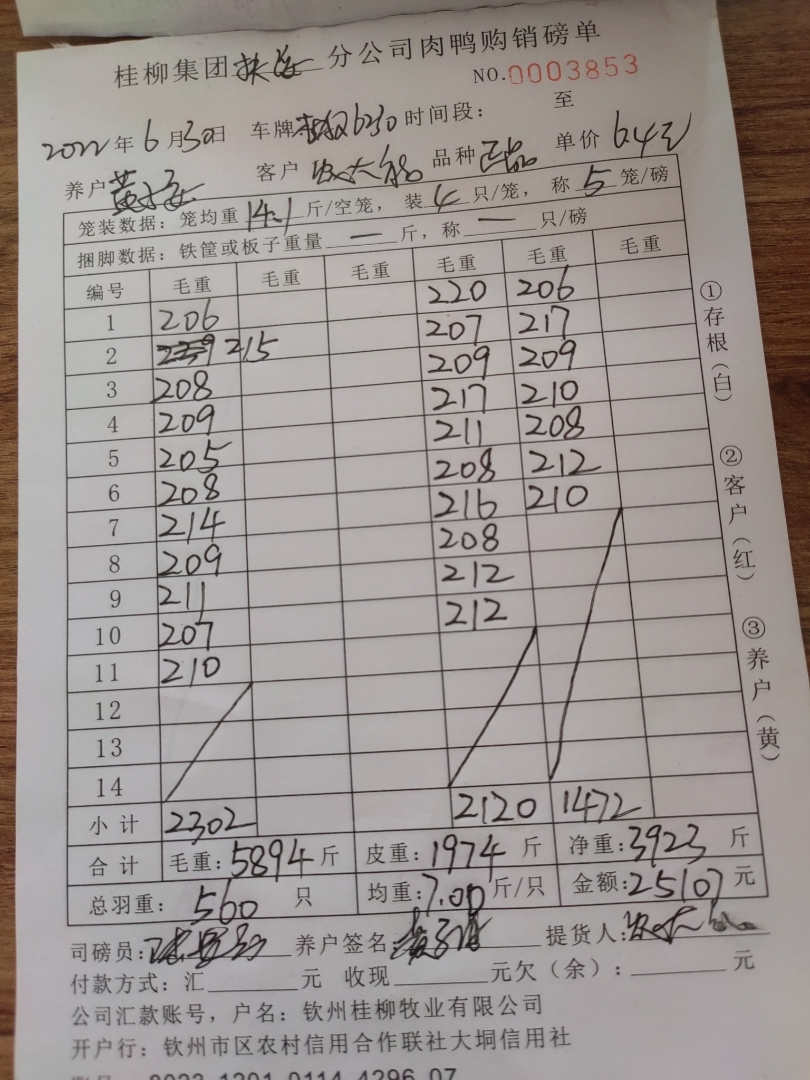 桂柳集团 分公司肉鸭购销磅单
NO.0003853
2022年6月30日 车牌 6230 时间段： 至
养户 客户 品种 正品 单价 6.4元
笼装数据：笼均重14.1斤/空笼，装4只/笼，称5笼/磅
捆脚数据：铁筐或板子重量一斤，称一只/磅
编号 毛重 毛重 毛重 毛重 毛重 毛重
220 206
1 206 207 217
2 215 209 209
3 208 217 210
4 209 211 208
5 205 208 212
6 208 216 210
7 214 208
8 209 212
9 211 212
10 207
11 210
12
13
14
小计 2302 2120 1472
合计 毛重：5894斤 皮重：1974斤 净重：3923斤
总羽重：560只 均重：7.00斤/只 金额：25107元
司磅员： 养户签名 提货人：
付款方式：汇 元 收现 元欠（余）： 元
公司汇款账号，户名：钦州桂柳牧业有限公司
开户行：钦州市区农村信用合作联社大垌信用社
①存根（白） ②客户（红） ③养户（黄）